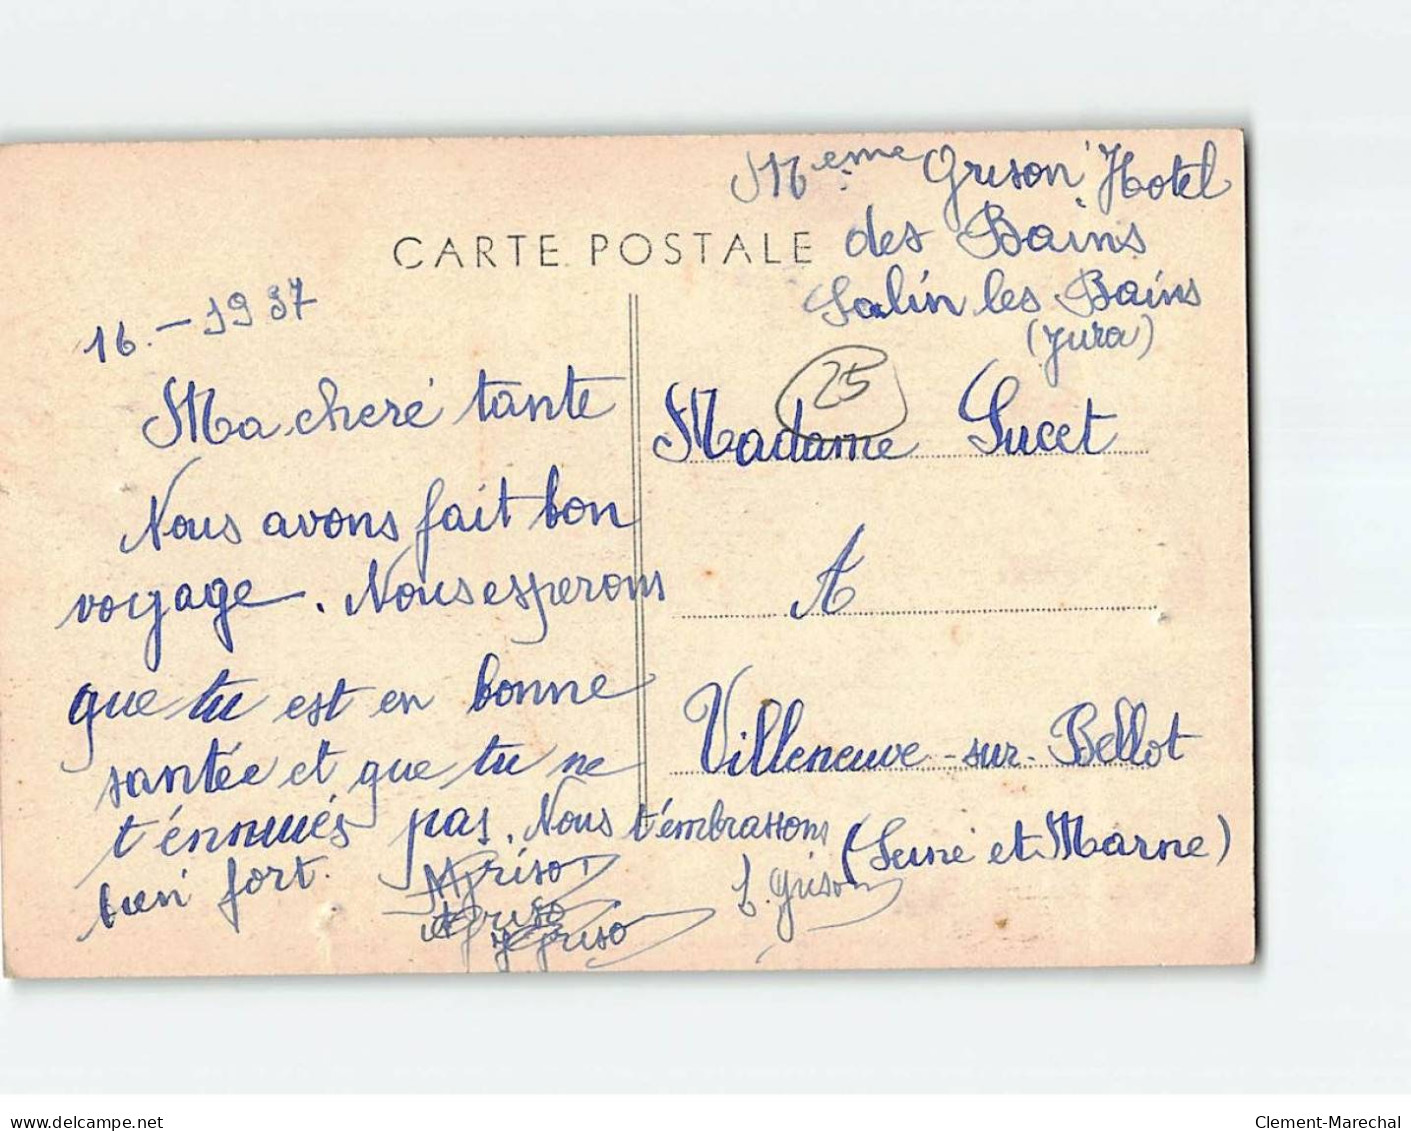 Meme Grison Hotel
des Bains
Salin les Bains
(Jura)
CARTE POSTALE
16. - 1937
Ma cheré tante
Nous avons fait bon
voyage. Nous esperons
que tu est en bonne
santée et que tu ne
t'énnuiés pas. Nous t'embrassons
bien fort.
Grison
Griso
Y Griso
f. Grison
25
Madame Lucet
A
Villeneuve-sur-Bellot
(Seine et Marne)
delcampe.net
Clement-Marechal